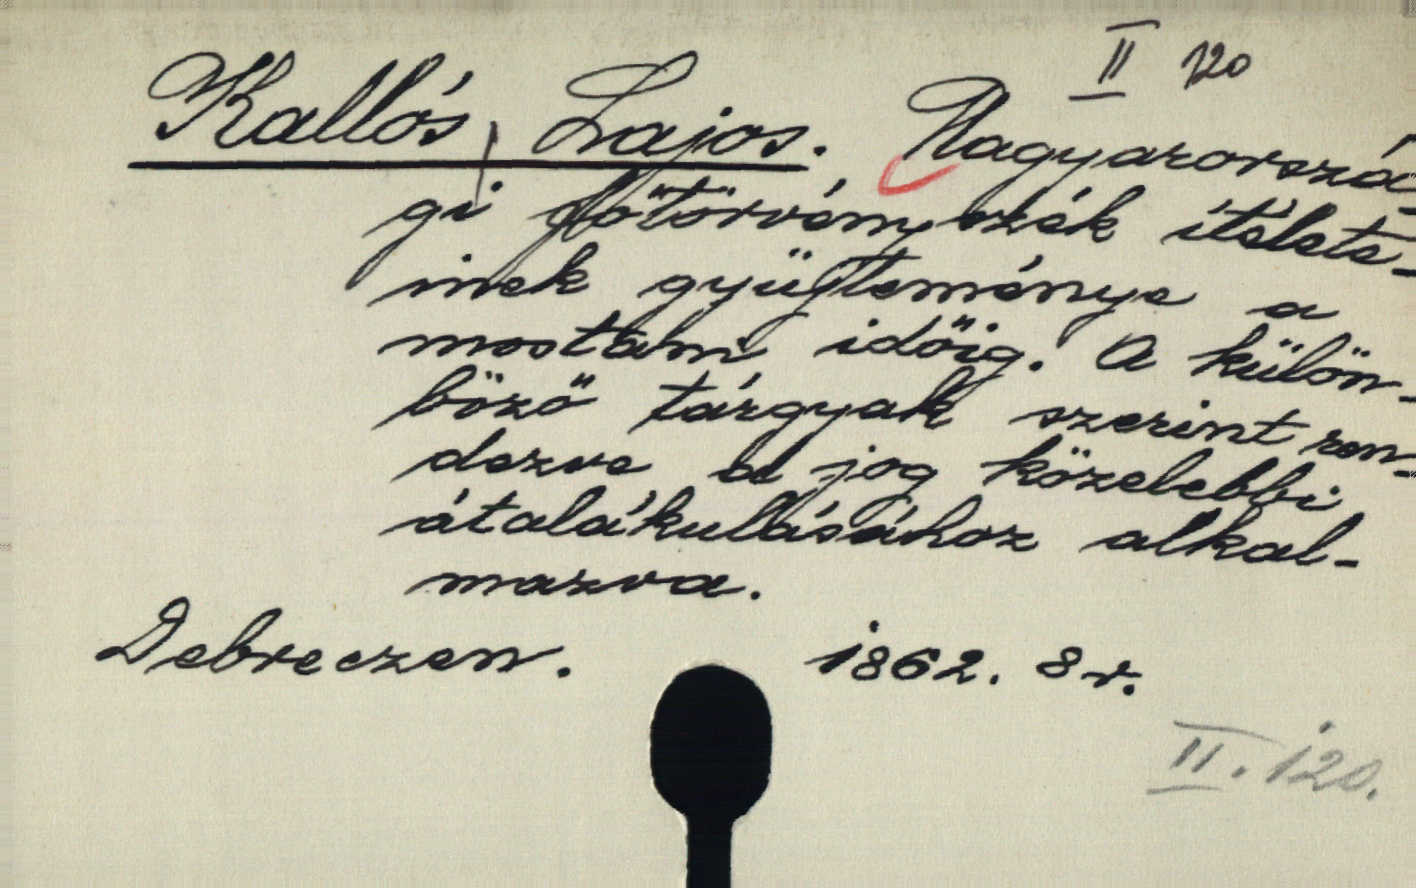 II 120
Kallós, Lajos. Magyarorszá-
gi főtörvényszék ítélete-
inek gyüjteménye a
mostani időig. A külön-
böző tárgyak szerint ren-
dezve a jog közelebbi
átalakulásához alkal-
mazva.
Debreczen. 1862. 8 r.
II. 120.